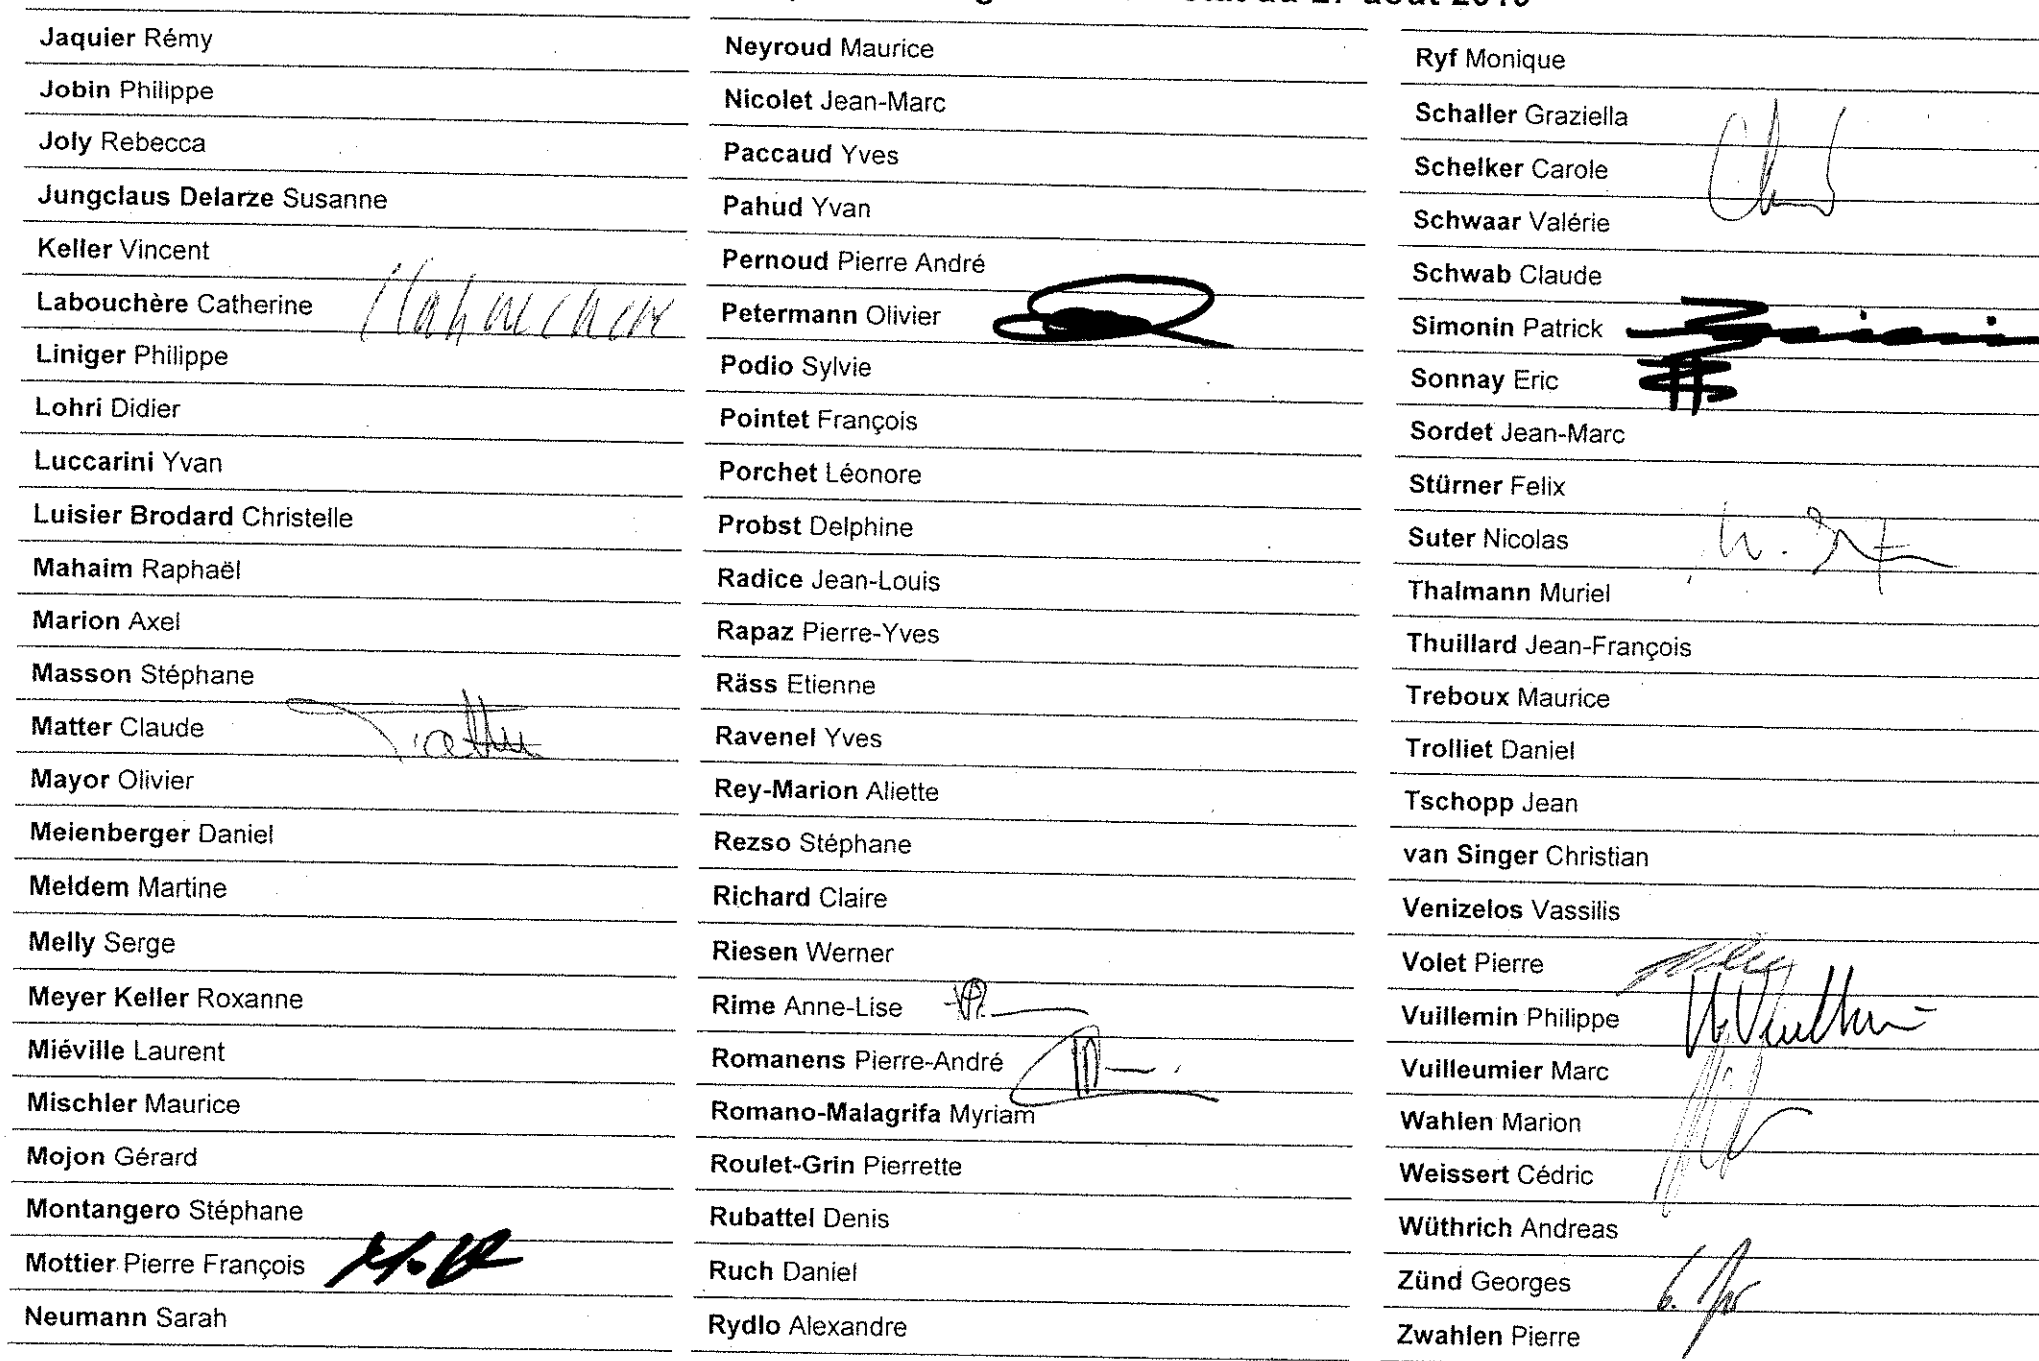 août 2019
Jaquier Rémy
Jobin Philippe
Joly Rebecca
Jungclaus Delarze Susanne
Keller Vincent
Labouchère Catherine
Liniger Philippe
Lohri Didier
Luccarini Yvan
Luisier Brodard Christelle
Mahaim Raphaël
Marion Axel
Masson Stéphane
Matter Claude
Mayor Olivier
Meienberger Daniel
Meldem Martine
Melly Serge
Meyer Keller Roxanne
Miéville Laurent
Mischler Maurice
Mojon Gérard
Montangero Stéphane
Mottier Pierre François
Neumann Sarah
Neyroud Maurice
Nicolet Jean-Marc
Paccaud Yves
Pahud Yvan
Pernoud Pierre André
Petermann Olivier
Podio Sylvie
Pointet François
Porchet Léonore
Probst Delphine
Radice Jean-Louis
Rapaz Pierre-Yves
Räss Etienne
Ravenel Yves
Rey-Marion Aliette
Rezso Stéphane
Richard Claire
Riesen Werner
Rime Anne-Lise
Romanens Pierre-André
Romano-Malagrifa Myriam
Roulet-Grin Pierrette
Rubattel Denis
Ruch Daniel
Rydlo Alexandre
Ryf Monique
Schaller Graziella
Schelker Carole
Schwaar Valérie
Schwab Claude
Simonin Patrick
Sonnay Eric
Sordet Jean-Marc
Stürner Felix
Suter Nicolas
Thalmann Muriel
Thuillard Jean-François
Treboux Maurice
Trolliet Daniel
Tschopp Jean
van Singer Christian
Venizelos Vassilis
Volet Pierre
Vuillemin Philippe
Vuilleumier Marc
Wahlen Marion
Weissert Cédric
Wüthrich Andreas
Zünd Georges
Zwahlen Pierre